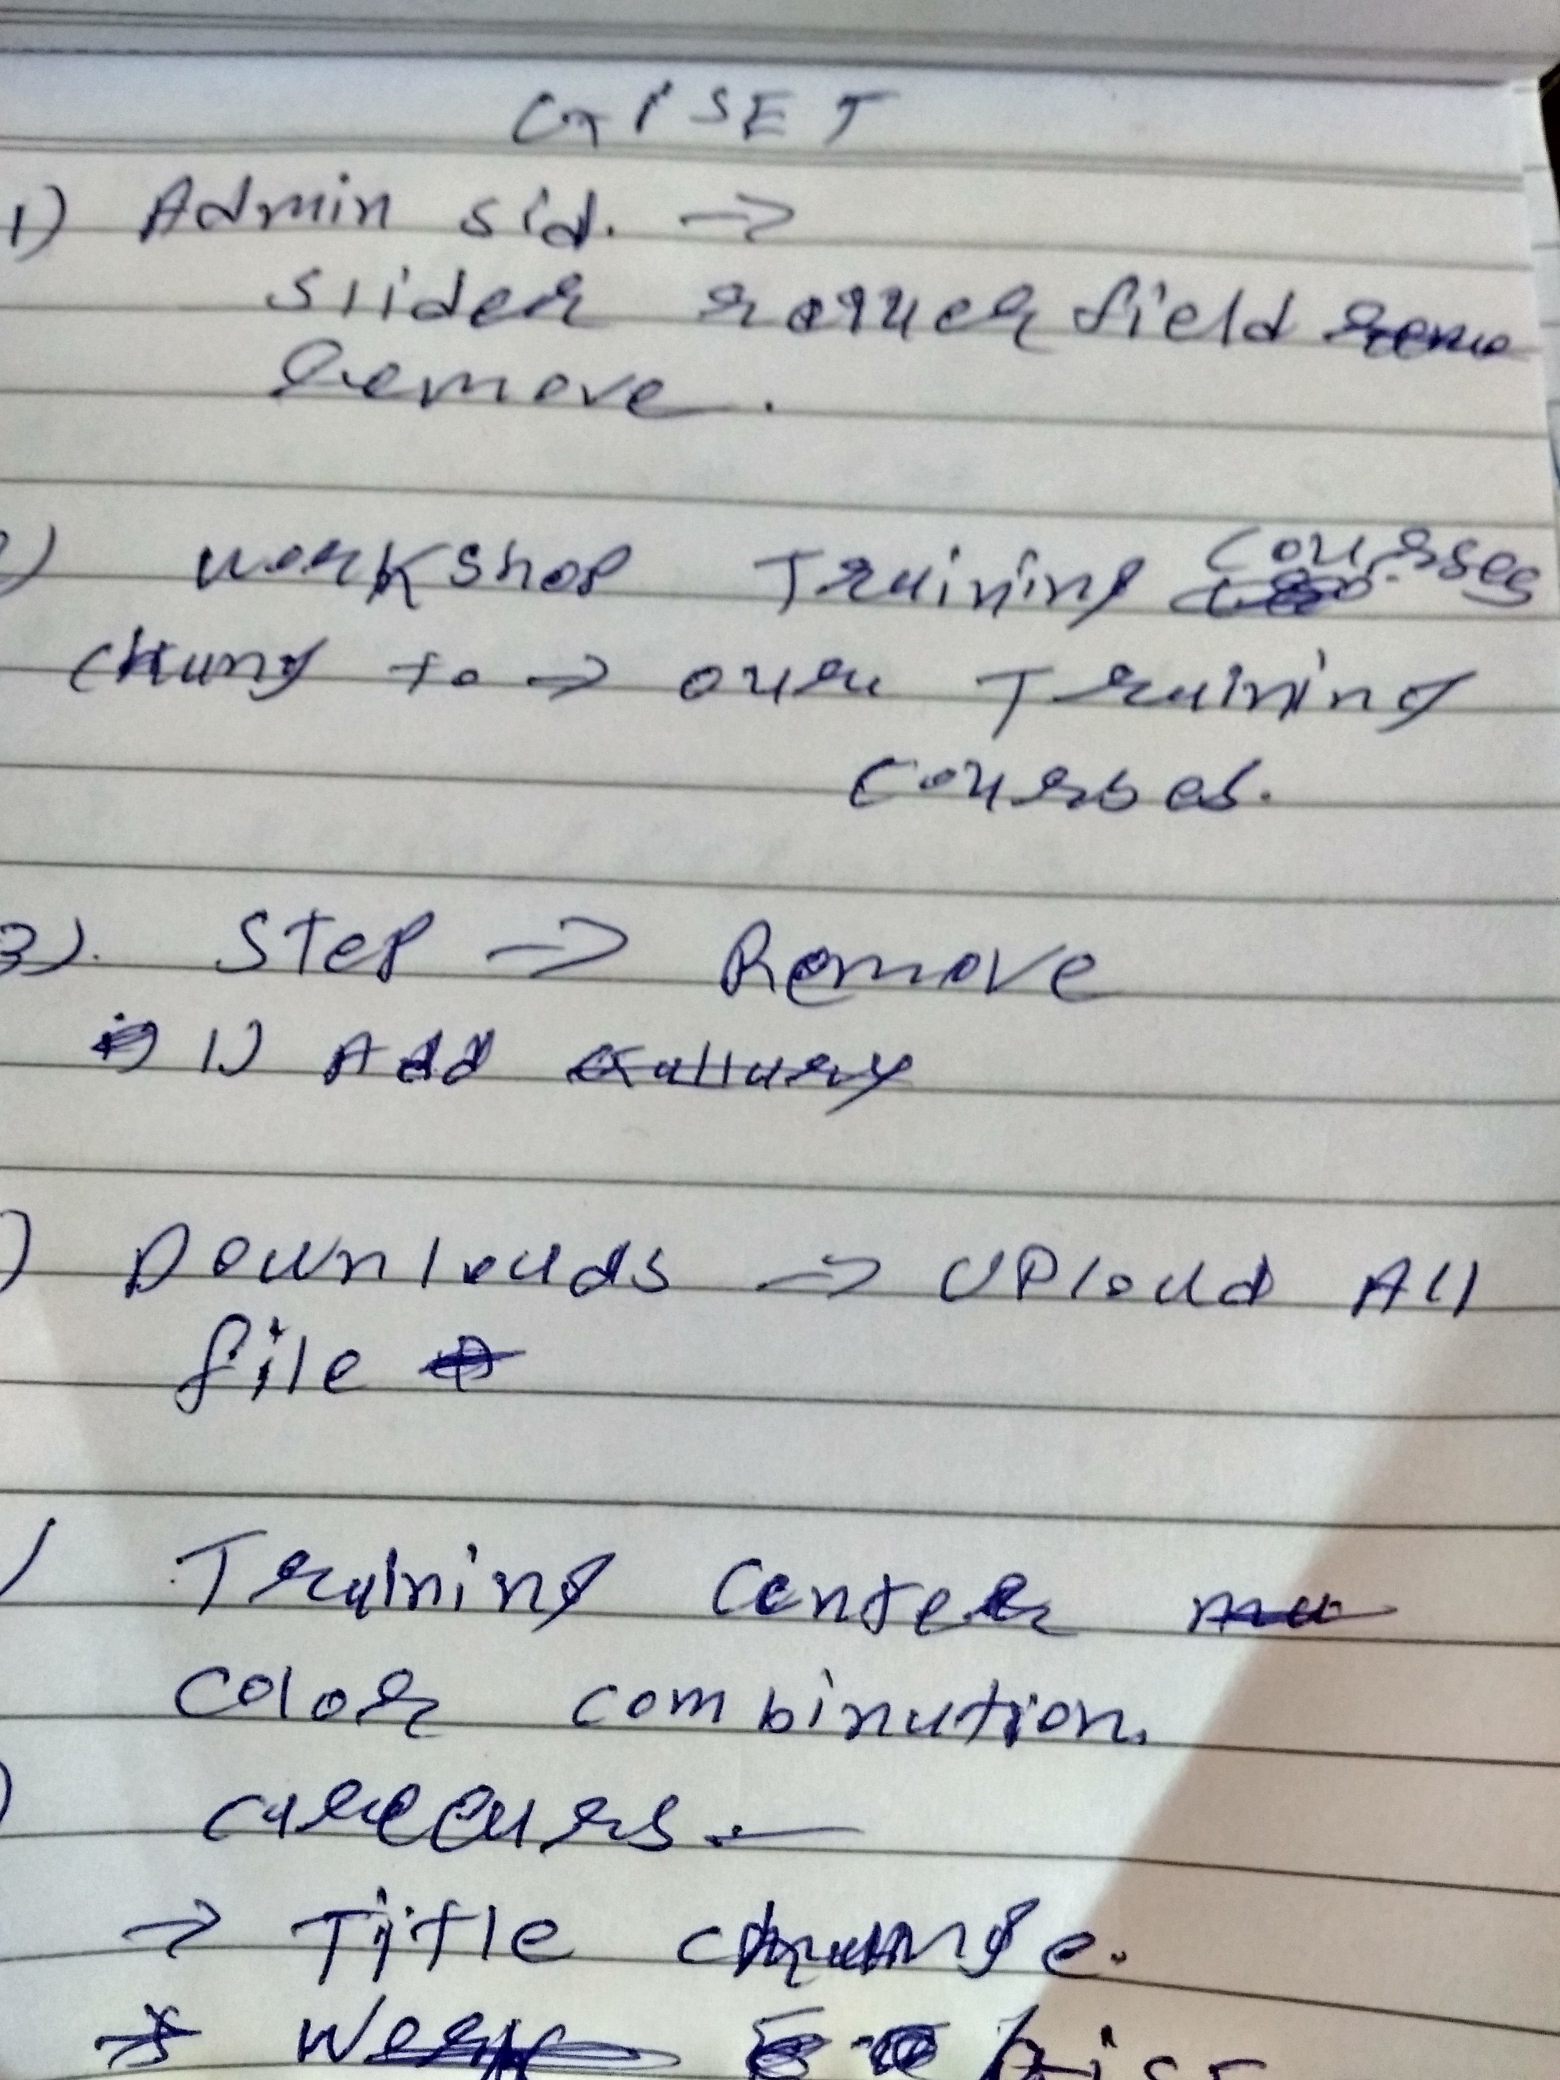 GISET
1) Admin sid. →
slider field
Remove.
) workshop Training Courses
Chang to → our Training
Courses.
3). Step → Remove
1) Add Gallary
) Downloads → Upload All
file
Training Center
color combination.
careears -
→ Title change.